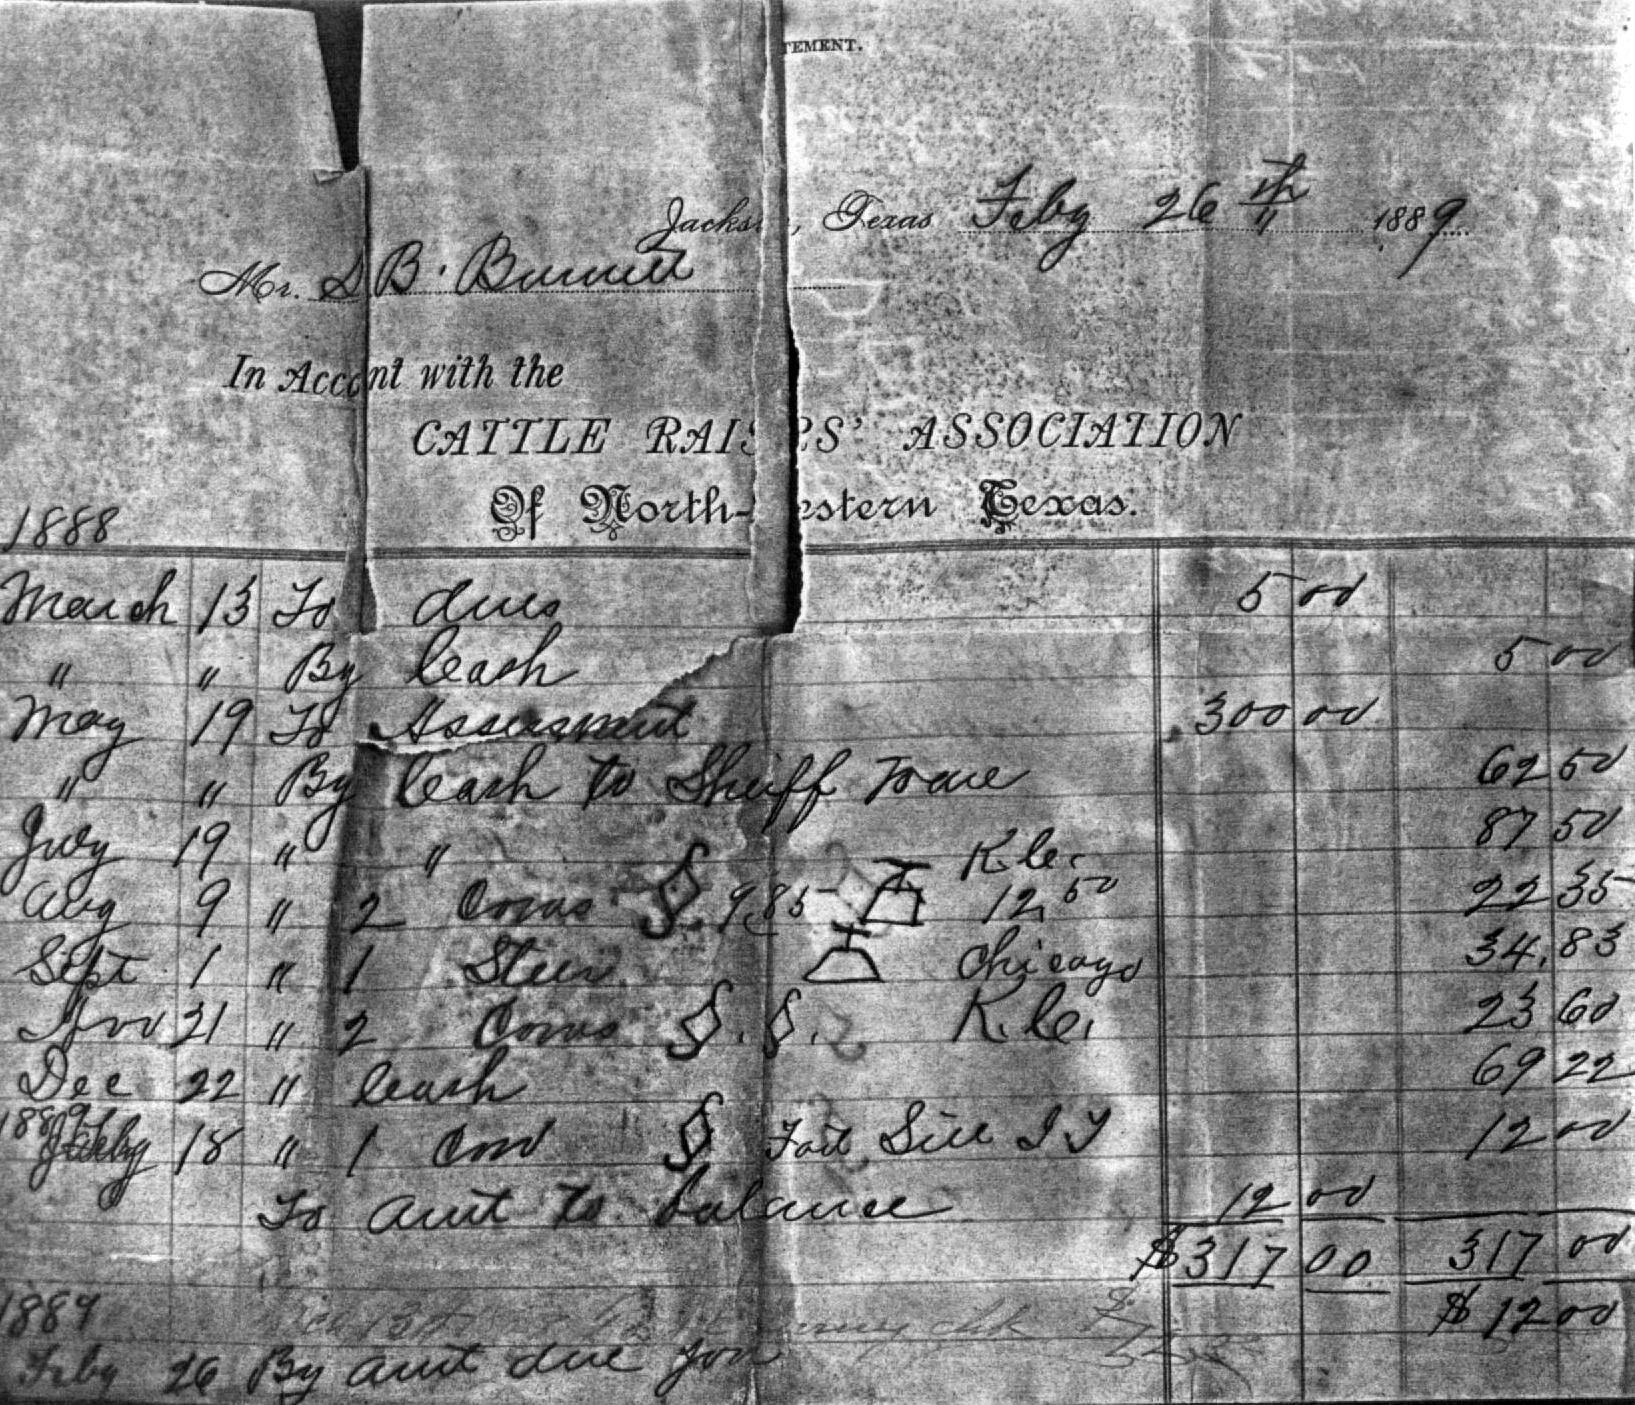 TEMENT.
Jacks , Texas Feby 26th 1889
Mr. S B. Burnett
In Acco nt with the
CATTLE RAIS RS' ASSOCIATION
Of North- estern Texas.
1888
March 13 To dues 5 00
" " By Cash 5 00
May 19 To Assessment 300 00
" " By Cash to Sheriff 62 50
July 19 " " K.C. 87 50
Aug 9 " 2 Cows 9.85 12.50 22 35
Sept 1 " 1 Steer Chicago 34.83
Nov 21 " 2 Cows K.C. 23 60
Dec 22 " Cash 69 22
1889 Feby 18 " 1 Cow Fort Sill I T 12 00
To amt to balance 12 00
$317 00 317 00
$12 00
1889
Feby 26 By amt due you